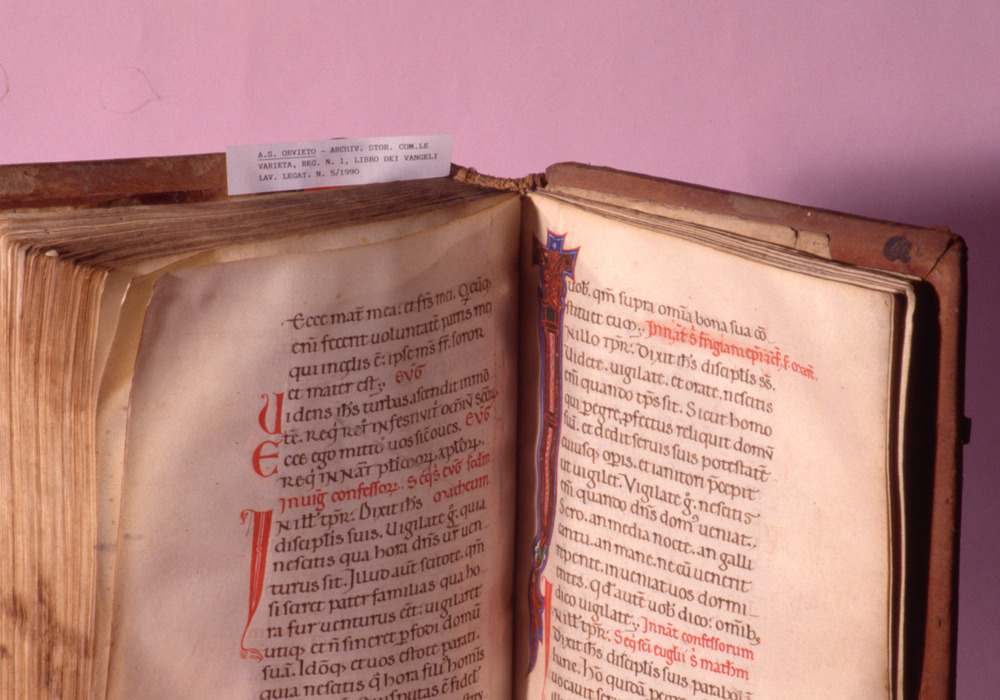 A.S. ORVIETO – ARCHIV. STOR. COM.LE
VARIETA, REG. N. 1, LIBRO DEI VANGELI
LAV. LEGAT. N. 5/1990
Ecce mat̄ mea: et fr̄s mei. Q cūq̄
enī fecerit voluntatē patris mei
qui in celis ē: ipse m̄s fr̄. soror
et mater est;. evḡ
Videns ih̄s turbas ascendit in mō
tē. Req̄
Ecce ego mitto vos sic oves. evḡ
Req̄ IN NAT̄ plimoꝝ aploꝝ.
In viḡ confessoꝝ. Seq̄s evḡ sedm̄
IN ill̄ tp̄r. Dixit ih̄s matheum
discipl̄is suis. Vigilate ḡ. quia
nescitis qua hora dn̄s ur̄ ven
turus sit. Illud aut̄ scitote. qm̄
si sciret pater familias qua ho
ra fur venturus eēt: vigilaret
utiq;. et n̄ sineret ꝑfodi domū
suā. Idōq; et vos estote parati.
quia nescitis q̄ hora fili' hōmis
vob̄. qm̄ supra om̄ia bona sua cō
stituet eum;. In nat̄ s̄ frigiani ep̄i
IN illo tp̄r. Dixit ih̄s discipl̄is s̄s.
Videte. vigilate. et orate. nescitis
eni quando tp̄s sit. Sicut homo
qui pegre ꝓfectus reliquit domū
suā. et dedit servis suis potestatē
cuiusq; op̄is. et ianitori p̄cepit
ut vigilet. Vigilate ḡ. nescitis
eni quando dn̄s dom' veniat.
Sero. an media nocte. an galli
cantu. an mane. ne cū venerit
repente. inveniat vos dormi
entes. Qđ autē vob̄ dico: omīb;
dico vigilate;. In nat̄ confessorum
IN ill̄ tp̄r. Seq̄ sc̄i evglii s̄ mathm̄
Dixit ih̄s discipulis suis parabolā
hanc. Hō quidā pegre
vocavit